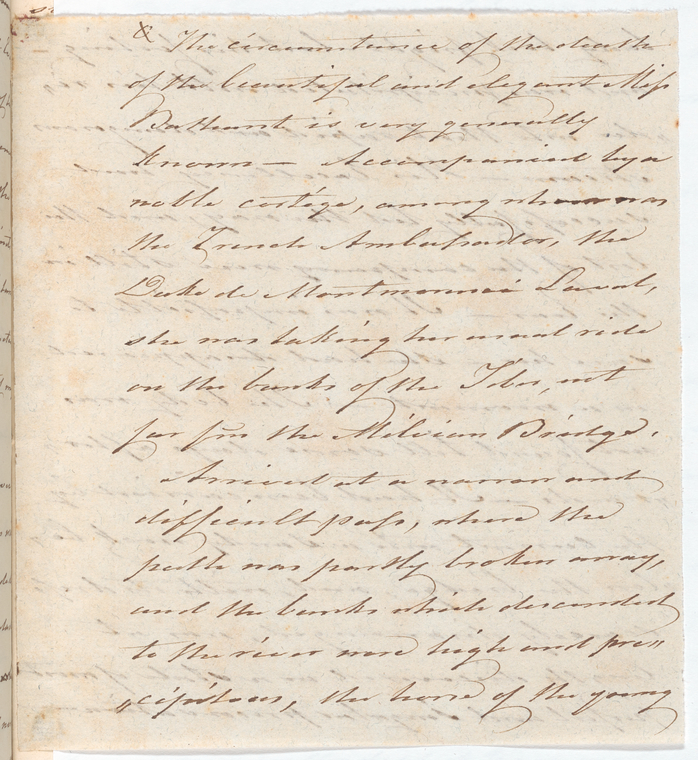 x The circumstance of the death
of the beautiful and elegant Miss
Bathurst is very generally
known — Accompanied by a
noble cortége, among whom was
the French Ambassador, the
Duke de Montmorenci Laval,
she was taking her usual ride
on the banks of the Tiber, not
far fm the Milvian Bridge.
Arrived at a narrow and
difficult pass, where the
path was partly broken away,
and the banks which descended
to the river were high and pre„
„cipitous, the horse of the young